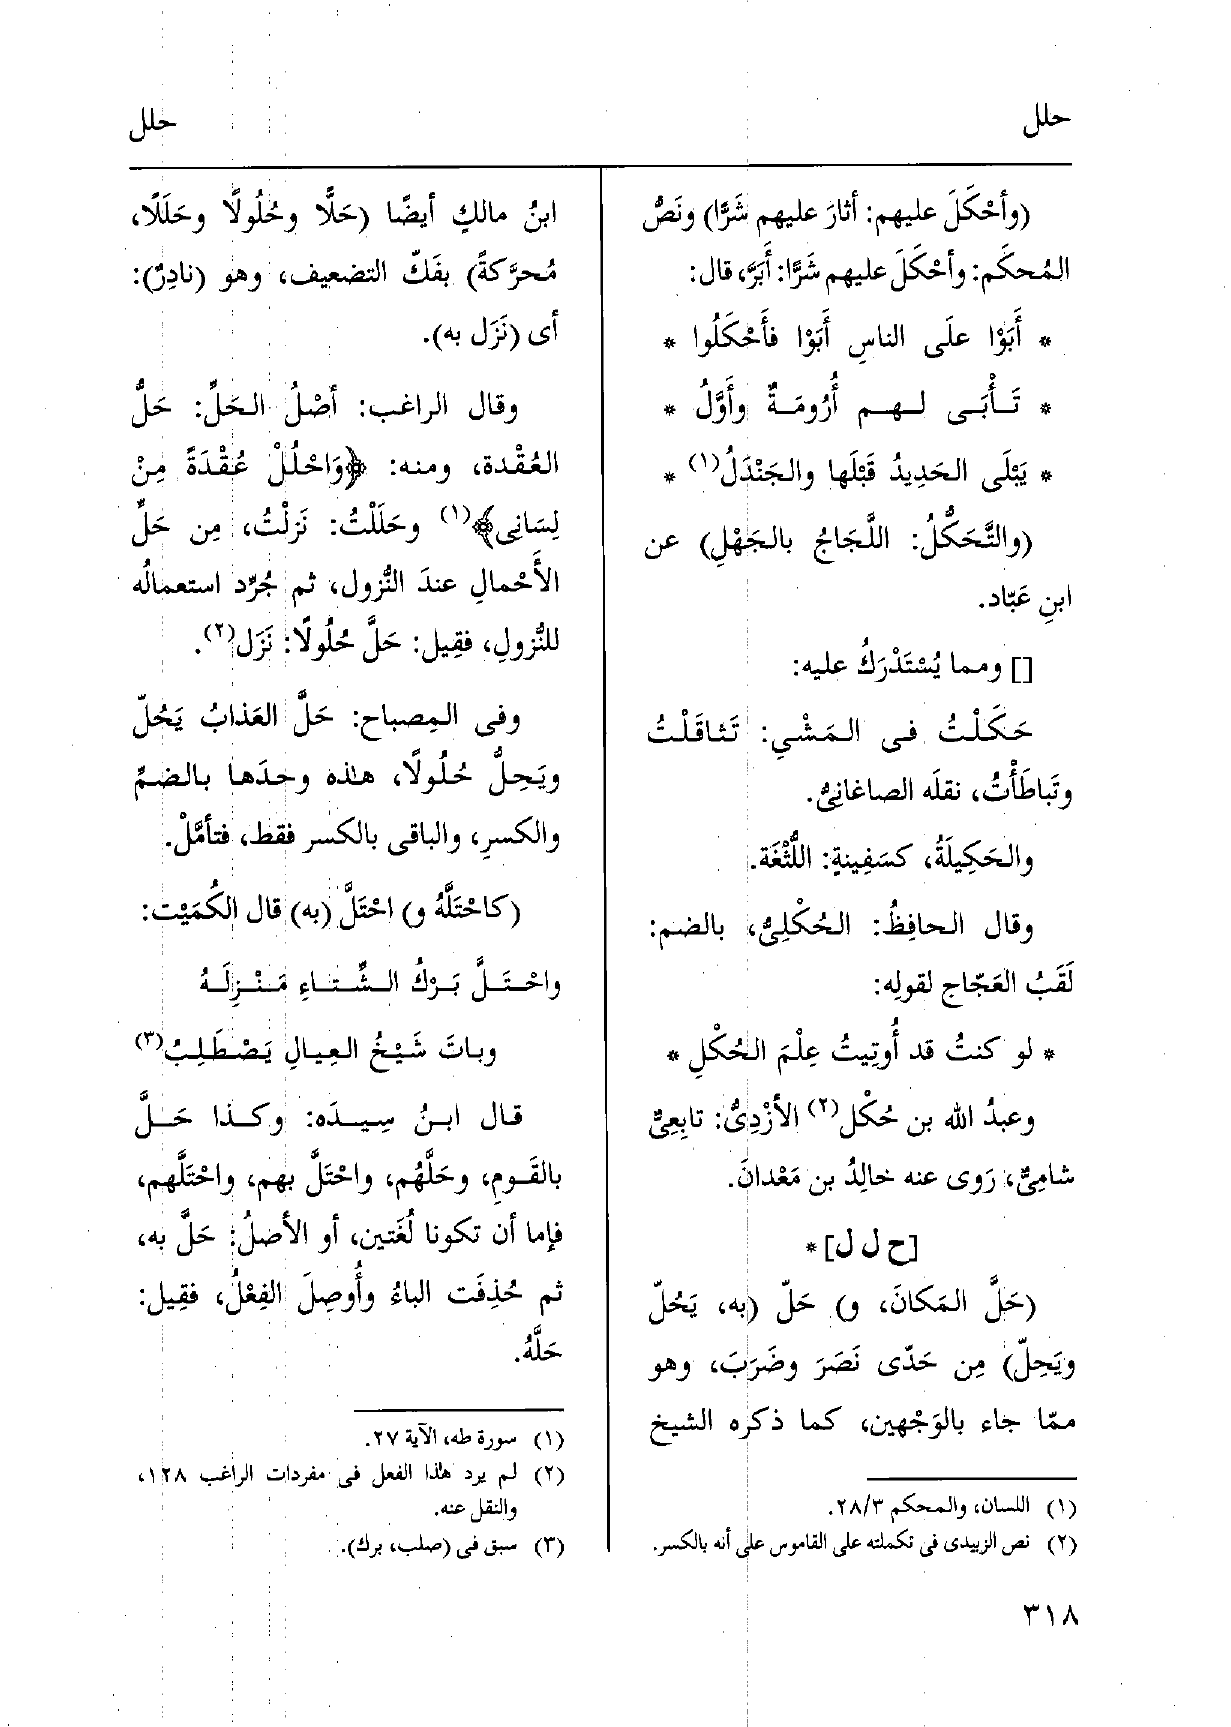 حلل
حلل
(وأَحْكَلَ عليهم: أثارَ عليهم شَرًّا) ونَصُّ
المُحكَم: وأحْكَلَ عليهم شَرًّا: أَبَرَّ، قال:
* أَبَوْا علَى الناسِ أَبَوْا فأَحْكَلُوا *
* تَأْبَى لهم أُرُومَةٌ وأَوَّلُ *
* يَبْلَى الحَدِيدُ قَبْلَها والجَنْدَلُ(١) *
(والتَّحَكُّلُ: اللَّجَاجُ بالجَهْلِ) عن
ابنِ عَبّاد.
[] ومما يُسْتَدْرَكُ عليه:
حَكَلْتُ فى المَشْيِ: تَثاقَلْتُ
وتَباطَأْتُ، نقلَه الصاغانِىُّ.
والحَكِيلَةُ، كسَفِينةٍ: اللُّثْغَة.
وقال الحافِظُ: الحُكْلِىُّ، بالضم:
لَقَبُ العَجّاج لقولِه:
* لو كنتُ قد أُوتِيتُ عِلْمَ الحُكْلِ *
وعبدُ الله بن حُكْل(٢) الأَزْدِىُّ: تابِعِىٌّ
شامِىٌّ، رَوى عنه خالِدُ بن مَعْدانَ.
[ح ل ل]*
(حَلَّ المَكانَ، و) حَلّ (به، يَحُلّ
ويَحِلّ) مِن حَدّى نَصَرَ وضَرَبَ، وهو
ممّا جاء بالوَجْهين، كما ذكره الشيخ
(١) اللسان، والمحكم ٢٨/٣.
(٢) نص الزبيدى فى تكملته على القاموس على أنه بالكسر.
٣١٨
ابنُ مالكٍ أيضًا (حَلًّا وحُلُولًا وحَلَلًا،
مُحرَّكةً) بفَكّ التضعيف، وهو (نادِرٌ):
أى (نَزَل به).
وقال الراغب: أصْلُ الحَلِّ: حَلُّ
العُقْدة، ومنه: ﴿وَاحْلُلْ عُقْدَةً مِنْ
لِسَانِى﴾(١) وحَلَلْتُ: نَزلْتُ، مِن حَلِّ
الأَحْمالِ عندَ النُّزول، ثم جُرِّد استعمالُه
للنُّزولِ، فقِيل: حَلَّ حُلُولًا: نَزَل(٢).
وفى المِصباح: حَلَّ العَذابُ يَحُلّ
ويَحِلُّ حُلُولًا، هذه وحدَها بالضمِّ
والكسرِ، والباقى بالكسر فقط، فتأمَّلْ.
(كاحْتَلَّهُ و) احْتَلَّ (به) قال الكُمَيْت:
واحْتَلَّ بَرْكُ الشِّتاءِ مَنْزِلَهُ
وباتَ شَيْخُ العِيالِ يَصْطَلِبُ(٣)
قال ابنُ سِيدَه: وكذا حَلَّ
بالقَومِ، وحَلَّهُم، واحْتَلَّ بهم، واحْتَلَّهم،
فإما أن تكونا لُغَتين، أو الأصلُ: حَلَّ به،
ثم حُذِفَت الباءُ وأُوصِلَ الفِعْلُ، فقِيل:
حَلَّهُ.
(١) سورة طه، الآية ٢٧.
(٢) لم يرد هذا الفعل فى مفردات الراغب ١٢٨،
والنقل عنه.
(٣) سبق فى (صلب، برك).